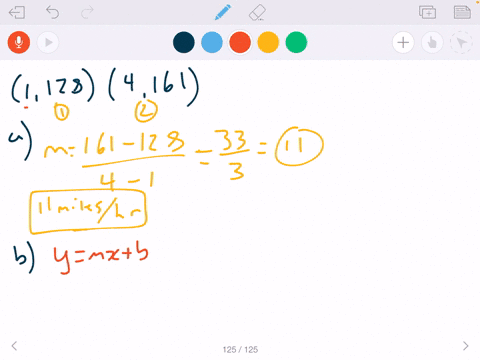 (1,128) (4,161)
① ②
a) m = 161 - 128 / 4 - 1 = 33 / 3 = 11
11 miles/hr
b) y = mx + b
125 / 125